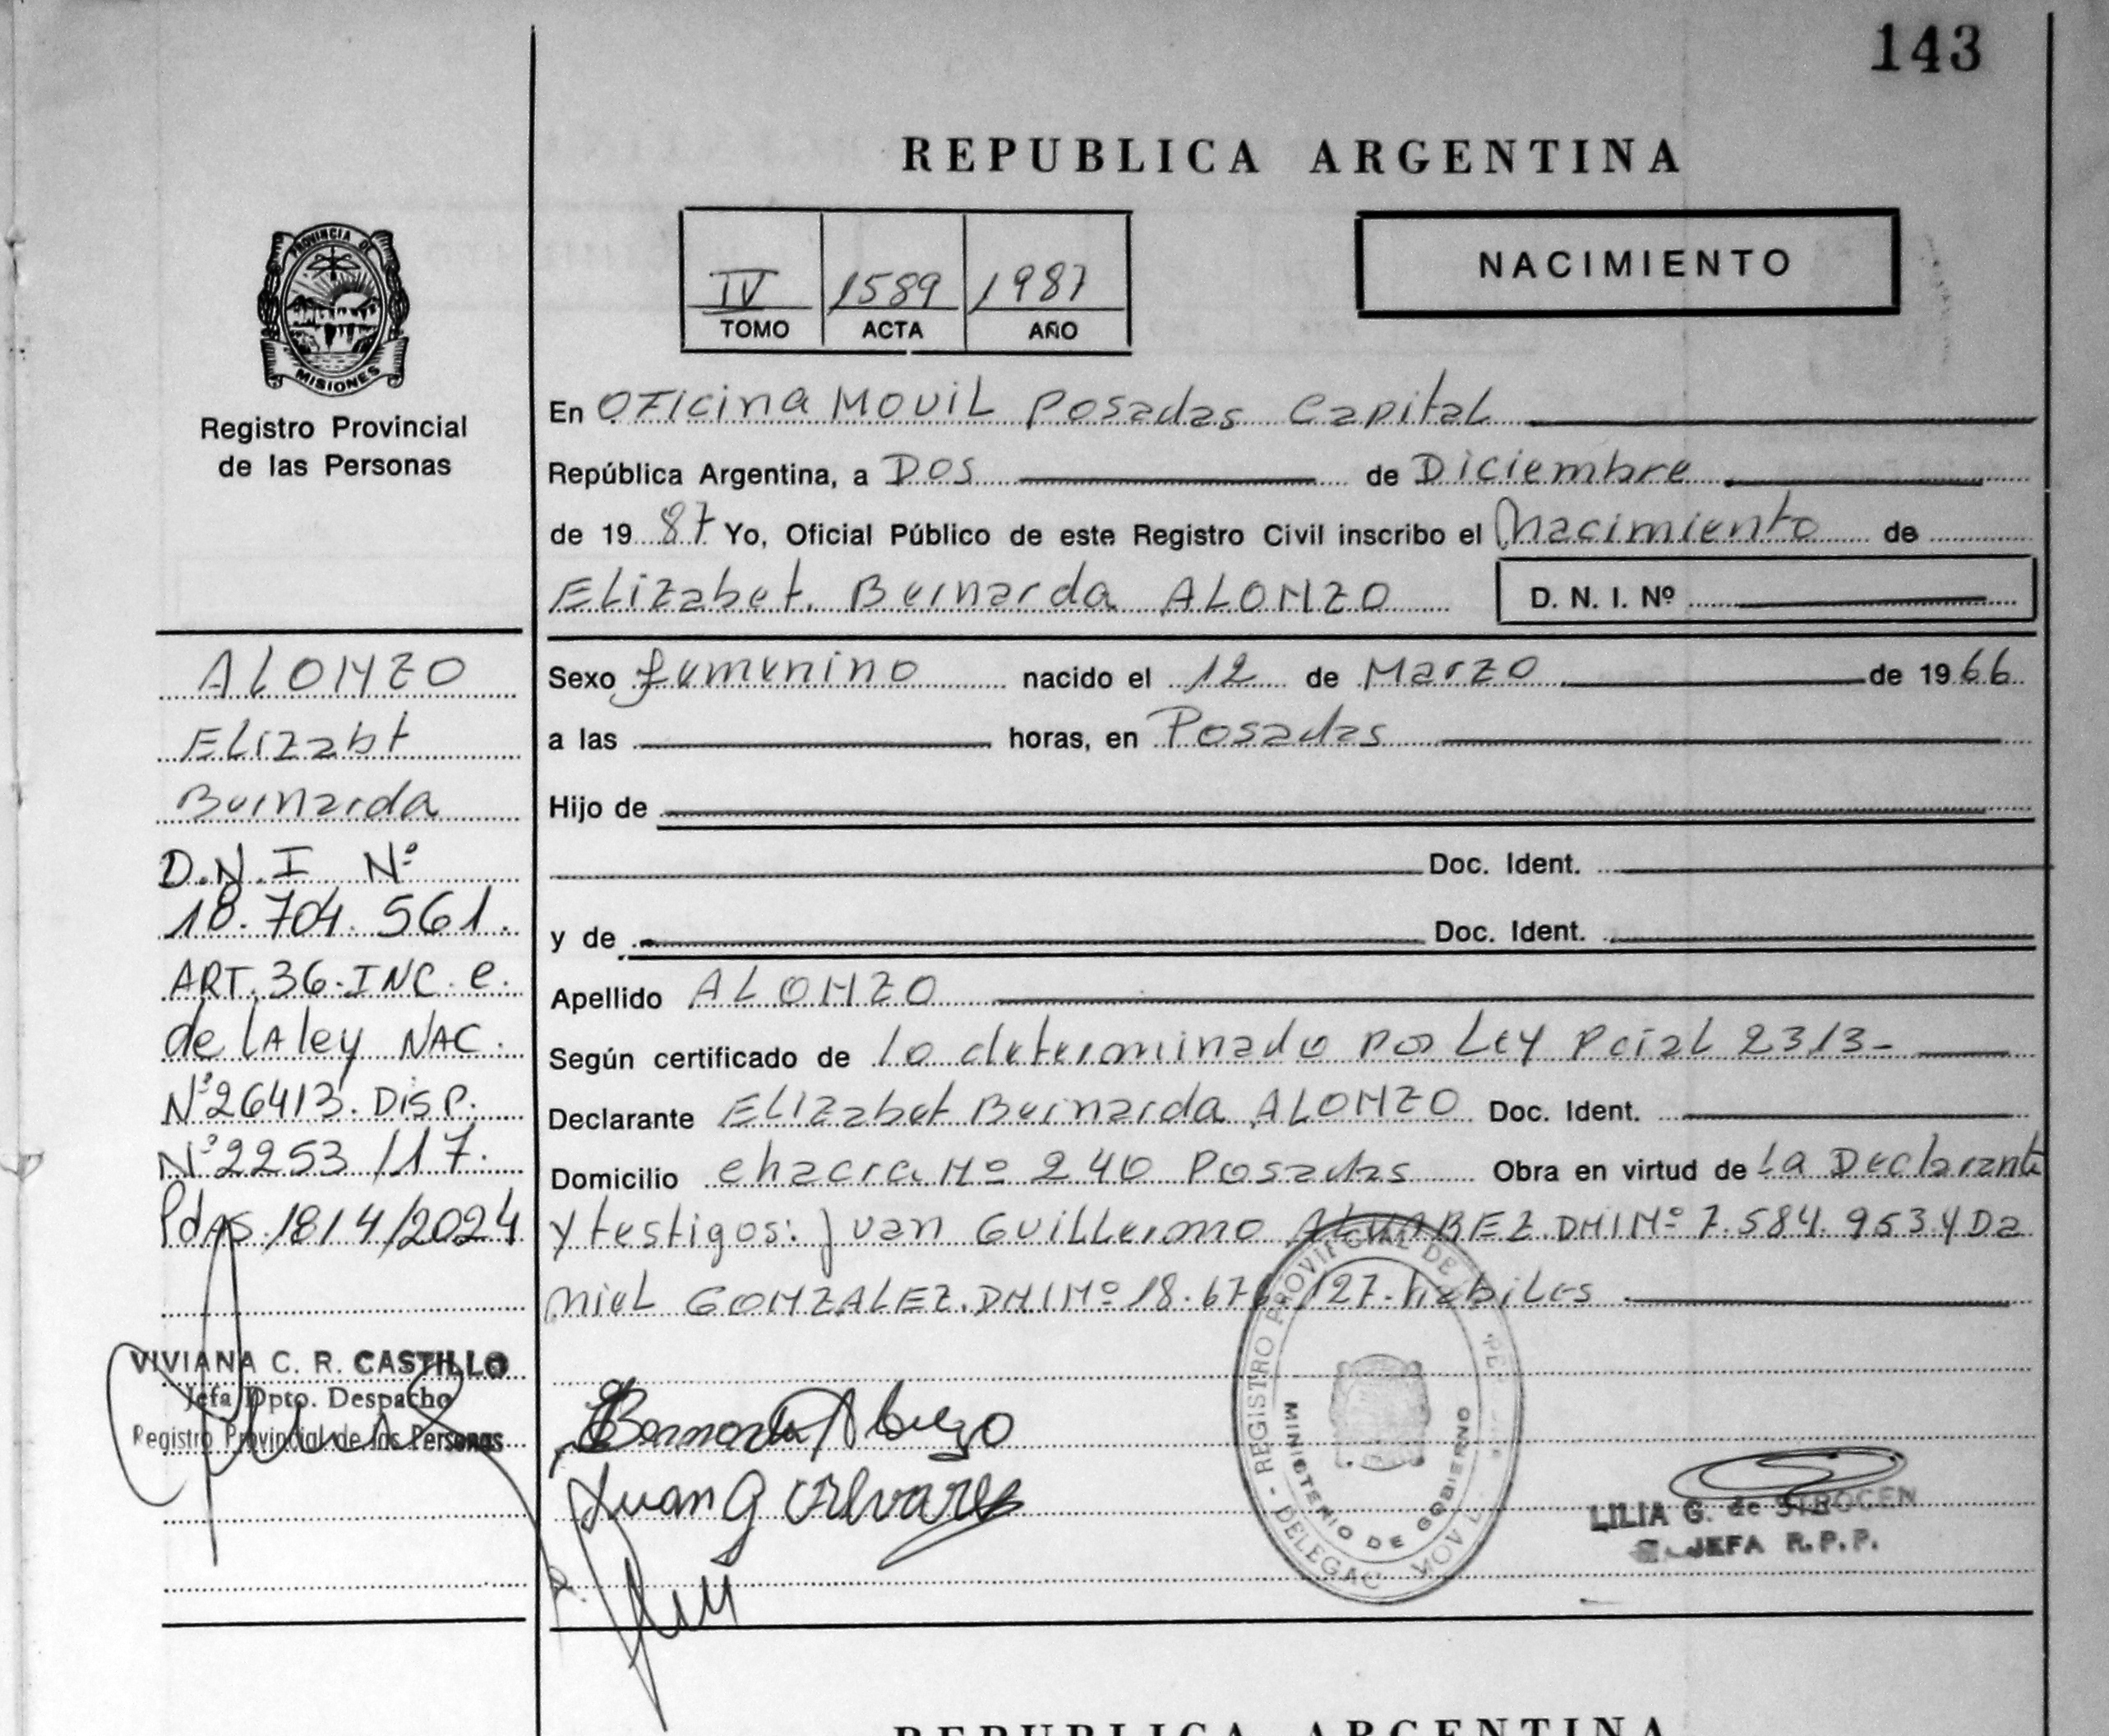 143
REPUBLICA ARGENTINA
PROVINCIA DE
MISIONES
Registro Provincial
de las Personas
IV 1589 1987
TOMO ACTA AÑO
NACIMIENTO
En OFicina MOVIL Posadas Capital
República Argentina, a Dos de Diciembre
de 19 87 Yo, Oficial Público de este Registro Civil inscribo el Nacimiento de
ELizabet. Bernarda ALONZO D. N. I. Nº
Sexo femenino nacido el 12 de Marzo de 1966
a las horas, en Posadas
Hijo de
Doc. Ident.
y de Doc. Ident.
Apellido ALONZO
Según certificado de lo determinado por Ley Pcial 2313-
Declarante ELIZabet Bernarda ALONZO Doc. Ident.
Domicilio chacra Nº 240 Posadas Obra en virtud de La Declarante
y testigos: Juan Guillermo ALVAREZ.DNI Nº 7.584.953 y Da
niel GONZALEZ.DNI Nº 18.676.127.habiles
ALONZO
ELizabt
Bernarda
D.N.I Nº
18.704.561.
ART.36-INC.e.
de lA ley NAC.
Nº26413.DISP.
Nº2253/17.
Pdas.18/4/2024
VIVIANA C. R. CASTILLO
Jefa Dpto. Despacho
Registro Provincial de las Personas
Bernarda Alonzo
Juan G Alvarez
REGISTRO PROVINCIAL DE
MINISTERIO DE GOBIERNO
LILIA G. de
JEFA R.P.P.
REPUBLICA ARGENTINA